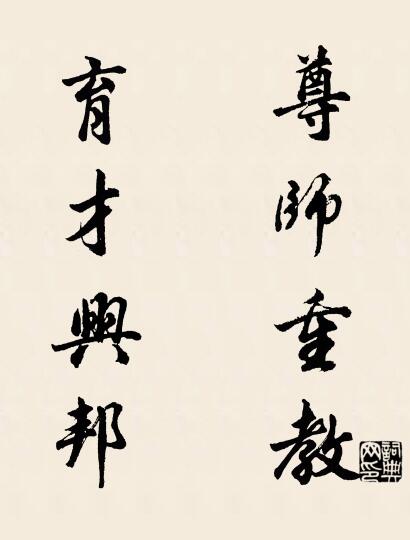 尊師重教
育才興邦
詞典网印